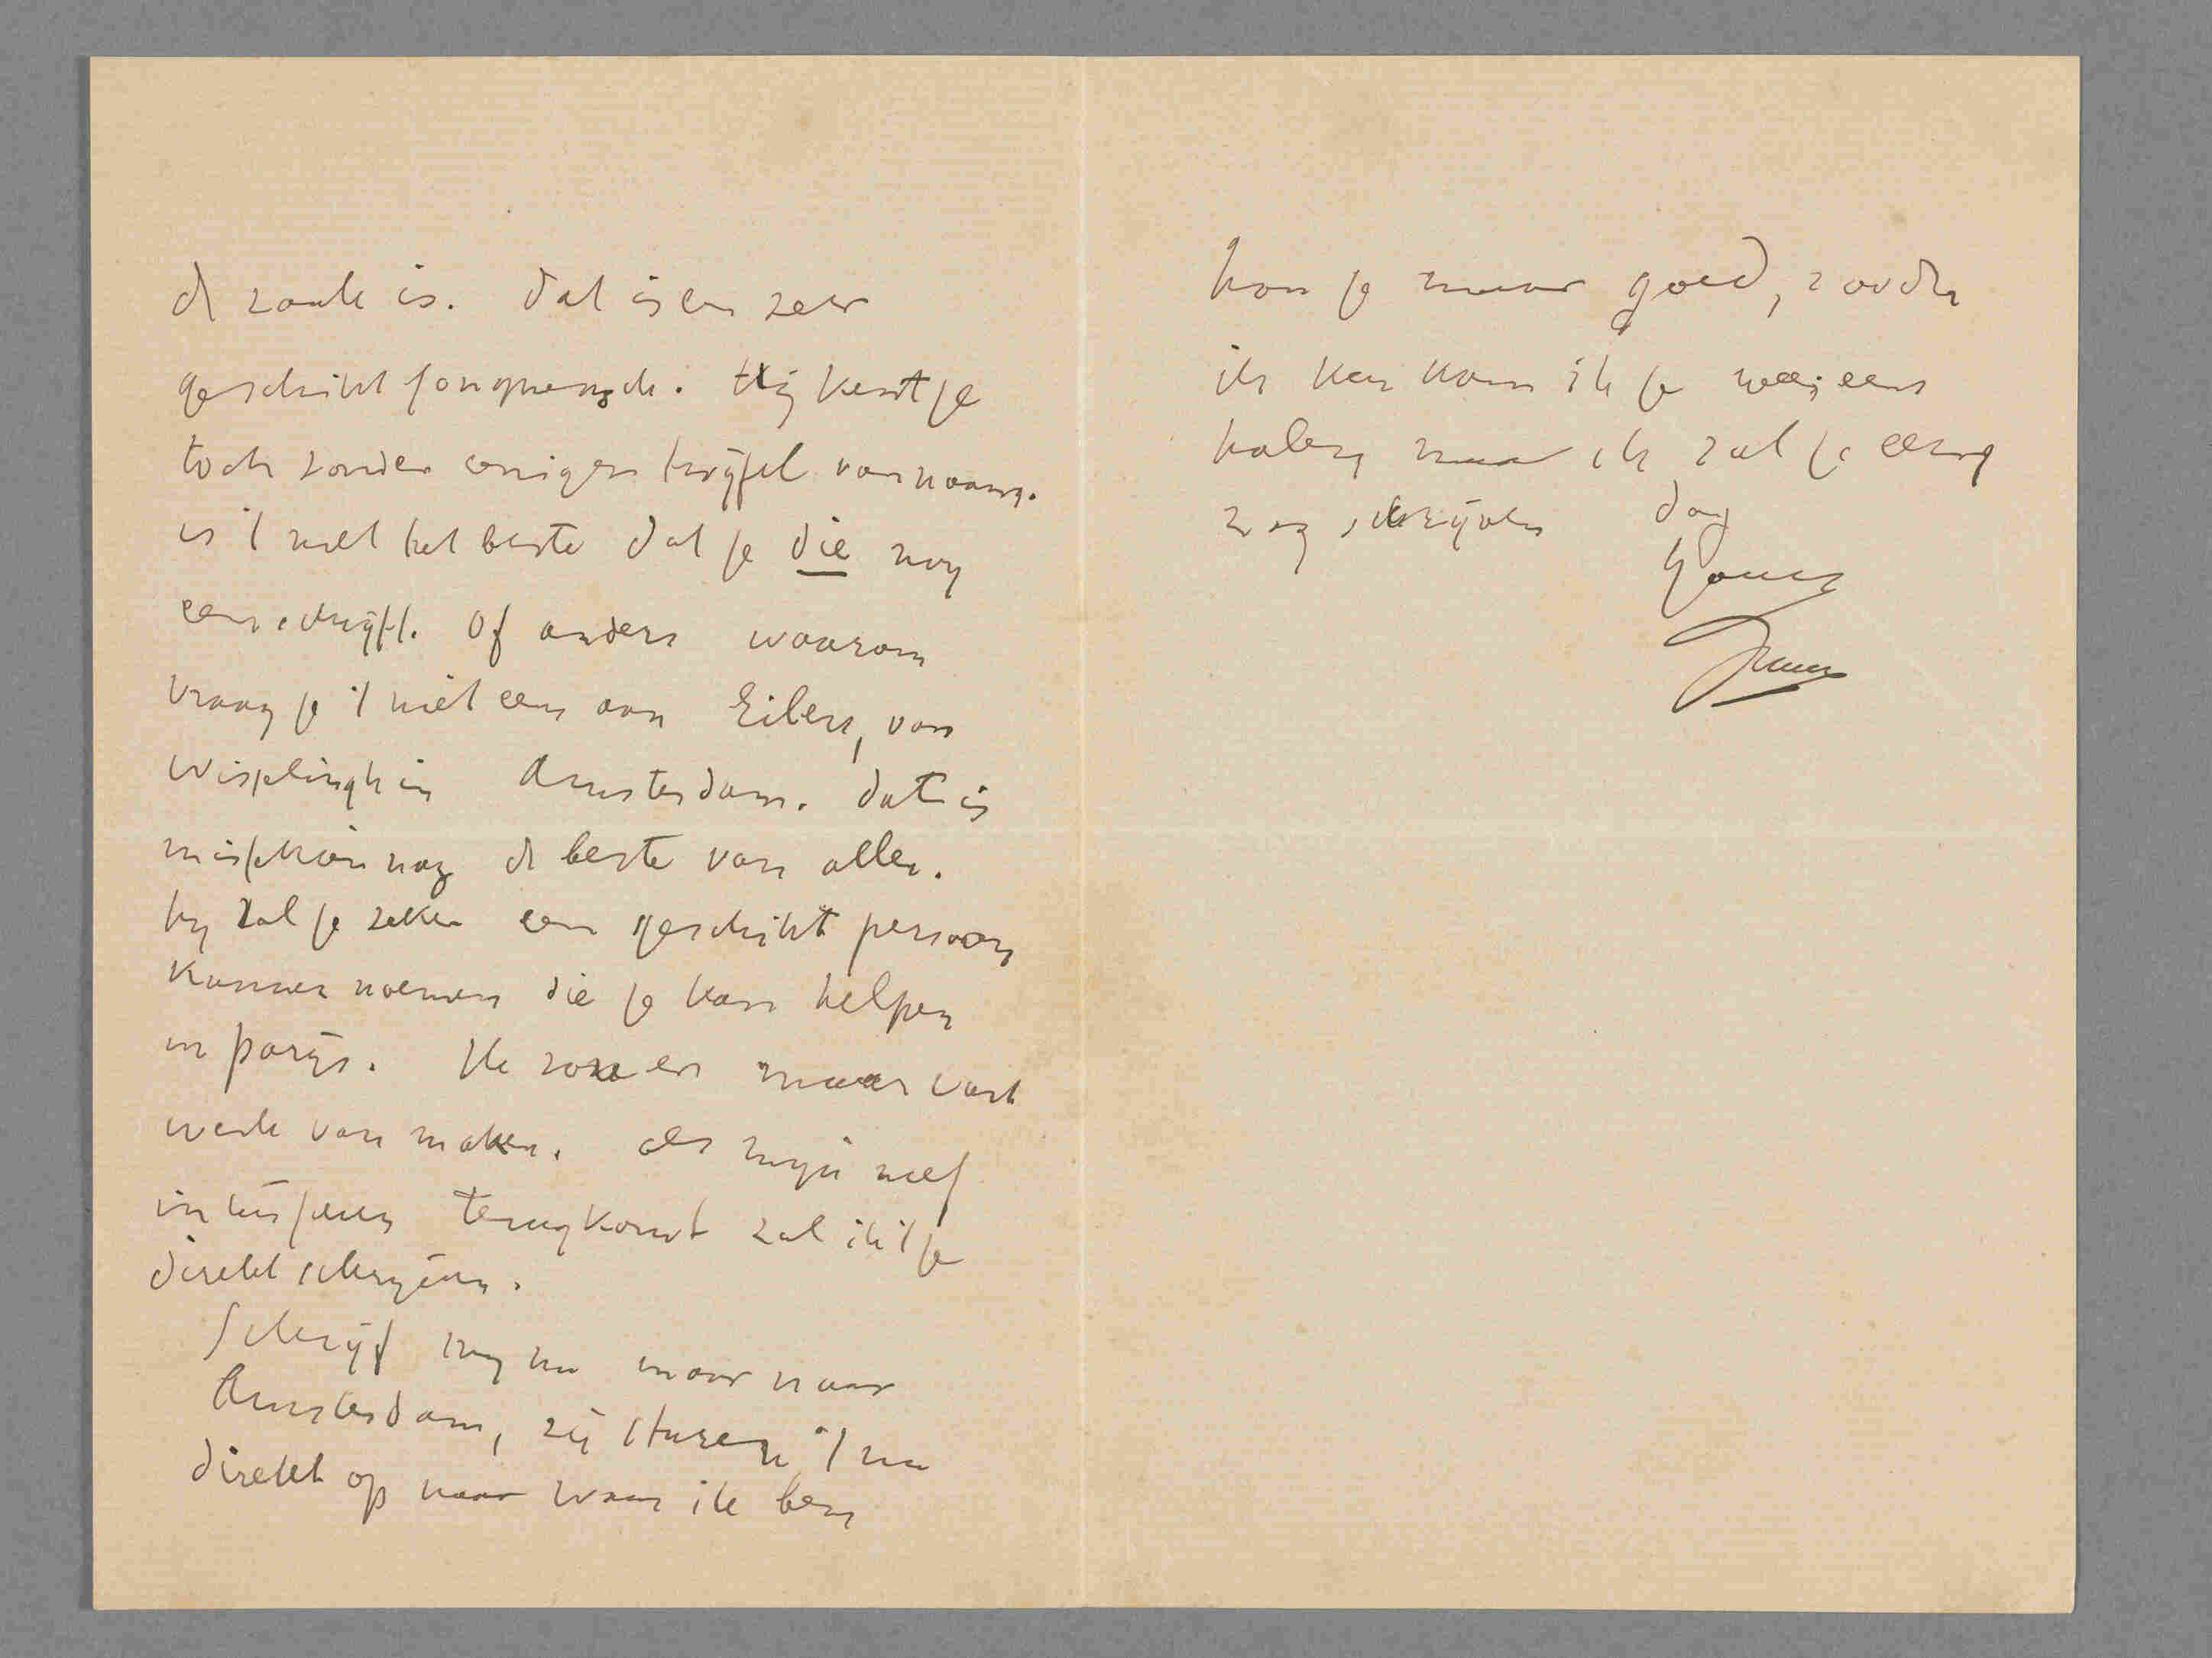 de zaak is. dat is een zeer
geschikt jongmensch. Hij kent je
toch zonder eenigen twijfel van naam.
is 't niet het beste dat je die nog
eens schrijft. Of anders waarom
vraag je 't niet eens aan Eilers, van
Wisselingh in Amsterdam. dat is
misschien nog de beste van allen.
hij zal je zeker een geschikt persoon
kunnen noemen die je kan helpen
in parijs. Ik zou er maar vast
werk van maken. als mijn neef
intusschen terugkomt zal ik 't je
direkt schrijven.
Schrijf mij nu maar naar
Amsterdam, zij sturen 't me
direkt op naar waar ik ben
hou je maar goed, zoodra
ik kan kom ik je weer eens
halen, maar ik zal je eerst
nog schrijven dag